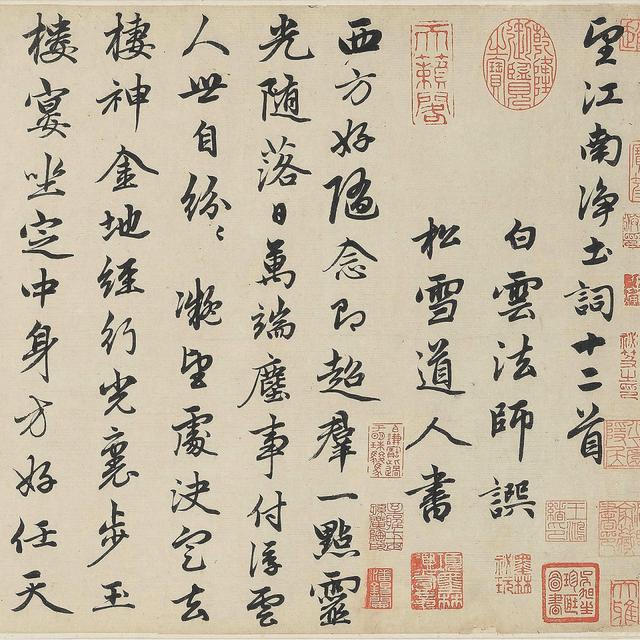 望江南净土詞十二首
白雲法師譔
松雪道人書
西方好隨念即超羣一點靈
光随落日萬端塵事付浮雲
人世自紛〻凝望處決定去
棲神金地經行光裏步玉
樓宴坐定中身方好任天
乾隆御覽之寶
天籟閣